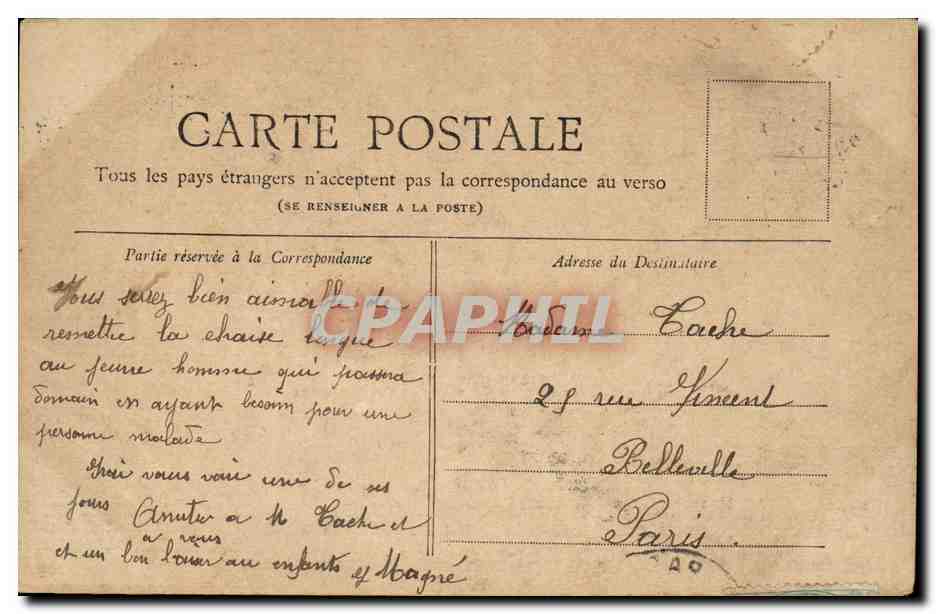 CARTE POSTALE
Tous les pays étrangers n'acceptent pas la correspondance au verso
(SE RENSEIGNER A LA POSTE)
Partie réservée à la Correspondance
Vous serez bien aimable de
remettre la chaise longue
au jeune homme qui passera
domain en ayant besoin pour une
personne malade
Jrai vous voir une de ses
jours Amitie a M Tache et
a vous
et un bon baiser au enfants
Magné
Adresse du Destinataire
Madame Tache
25 rue Vincent
Belleville
Paris.
CPAPHIL